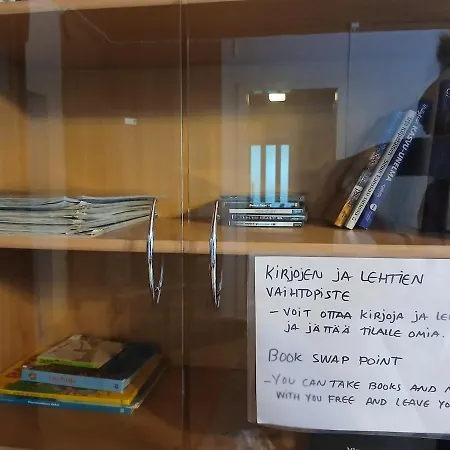 KASVU-UNELMA
KIRJOJEN JA LEHTIEN
VAIHTOPISTE
- VOIT OTTAA KIRJOJA JA LE
JA JÄTTÄÄ TILALLE OMIA.
BOOK SWAP POINT
- YOU CAN TAKE BOOKS AND M
WITH YOU FREE AND LEAVE YO